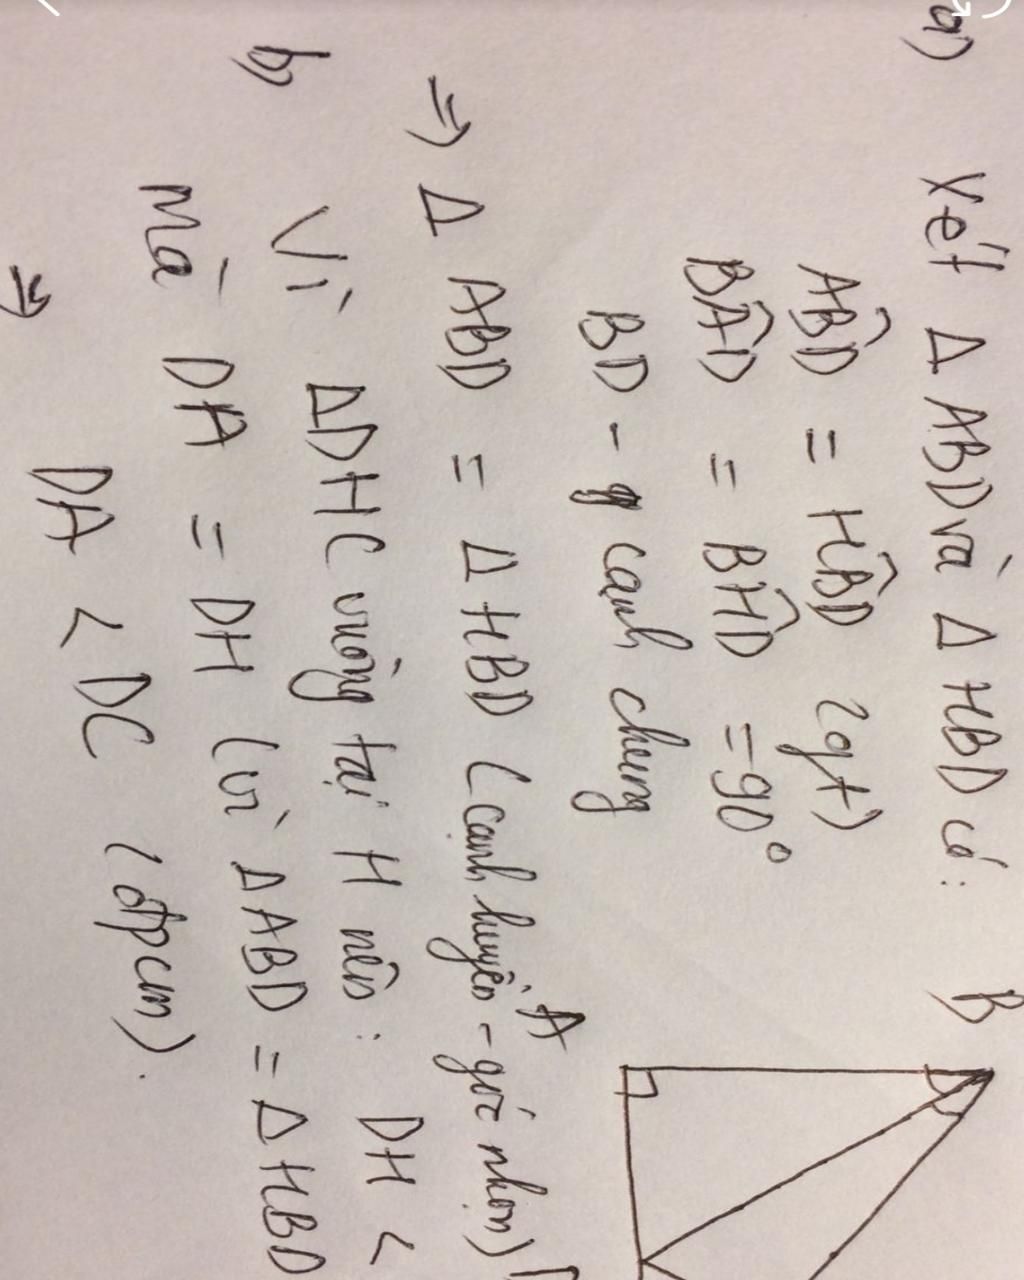 a) Xét Δ ABD và Δ HBD có:
AB̂D = HB̂D (gt)
BÂD = BĤD = 90°
BD - cạnh chung
⇒ Δ ABD = Δ HBD (cạnh huyền - góc nhọn)
b) Vì ΔDHC vuông tại H nên: DH <
Mà DA = DH (vì ΔABD = ΔHBD
⇒ DA < DC (đpcm).
B
A